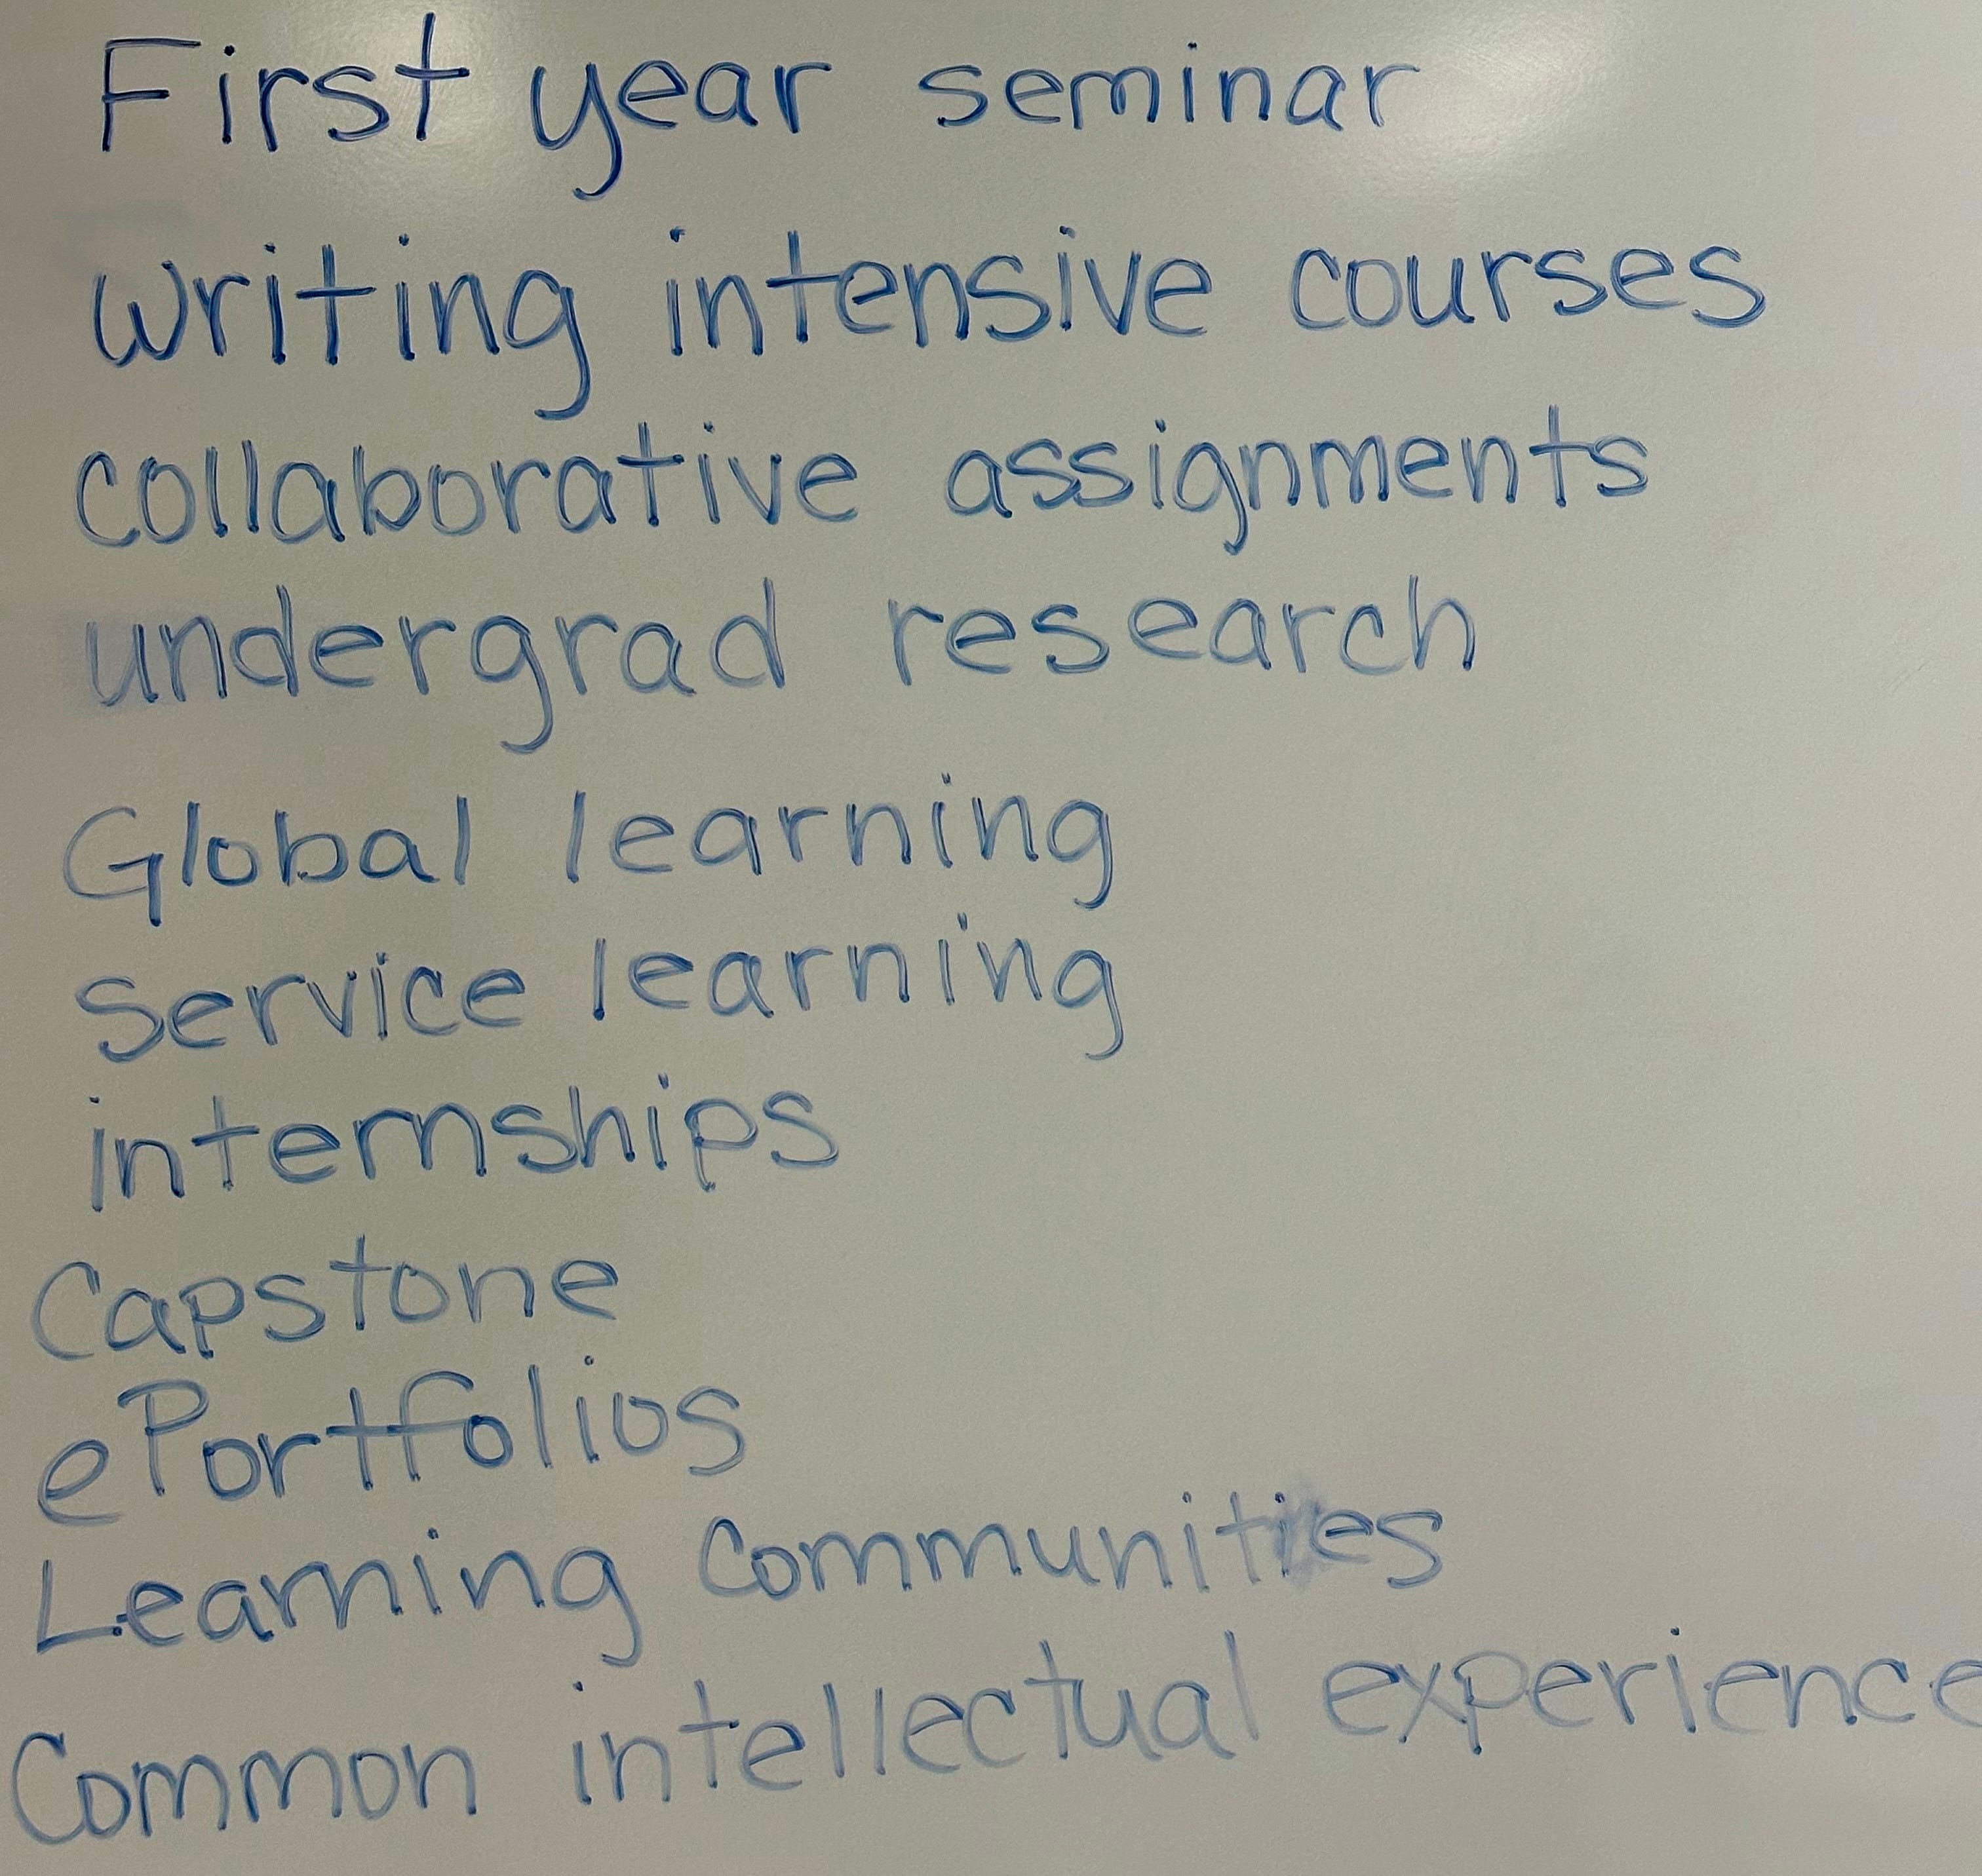 First year seminar
Writing intensive courses
collaborative assignments
undergrad research
Global learning
Service learning
internships
Capstone
ePortfolios
Learning Communities
Common intellectual experience